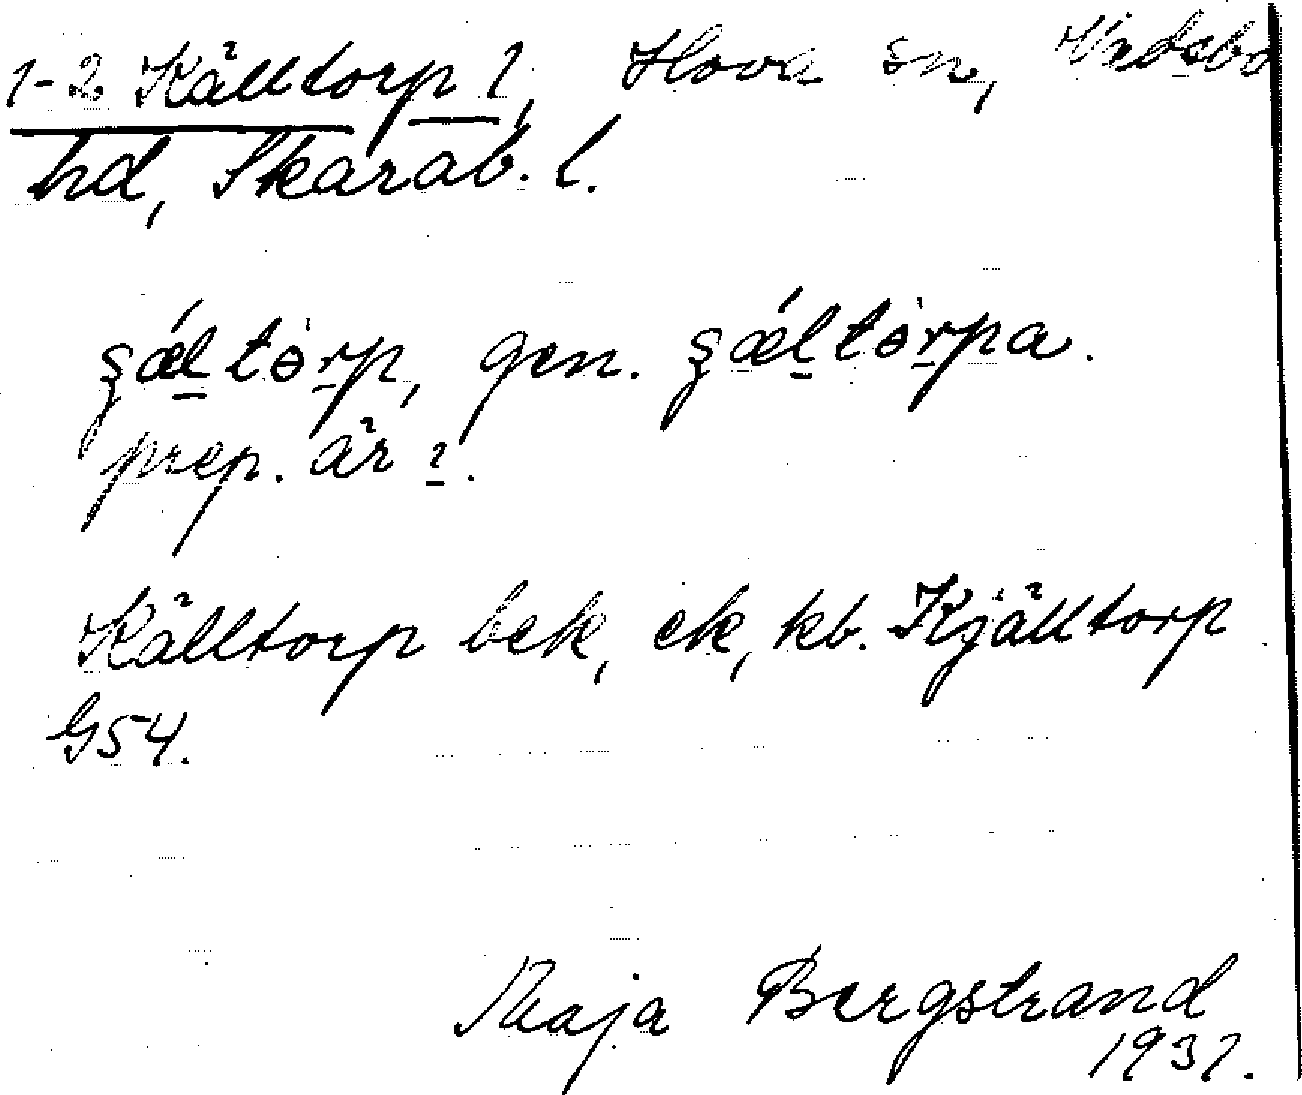 1-2 Källtorp 1, Hova sn, Vadsbo
hd, Skarab. l.
ʂǽltȯrp, gen. ʂǽltȯrpa.
prep. är ı.
Källtorp bek, ek, kb. Kjälltorp
G54.
Maja Bergstrand
1931.